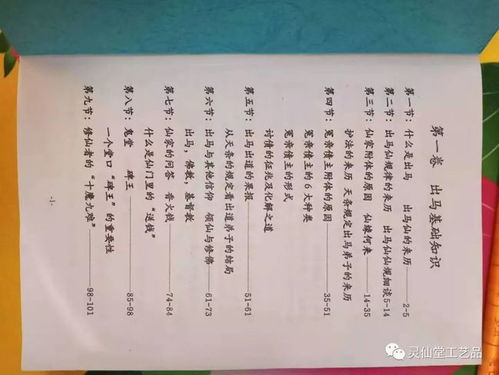 第一卷 出马基础知识
第一节：什么是出马 出马仙的来历————2-5
第二节：出马仙规律的来历 出马仙仙规细谈5-14
第三节：仙家附体的原因 仙缘何来————14-35
护法的来历 天条规定出马弟子的来历
第四节：冤亲债主附体的原因————35-51
冤亲债主的6大种类
冤亲债主的形式
讨债的征兆及化解之道
第五节：出马出道的果报————51-61
从天条的规定看出道弟子的结局
第六节：出马与其他信仰 领仙与修佛————61-73
出马，佛教，基督教
第七节：仙家的问答 看火钱————74-84
什么是仙门里的“送钱”
第八节：鬼堂 碑王————85-98
一个堂口“碑王”的重要性
第九节：修仙者的“十魔九难”————98-101
-1-
灵仙堂工艺品